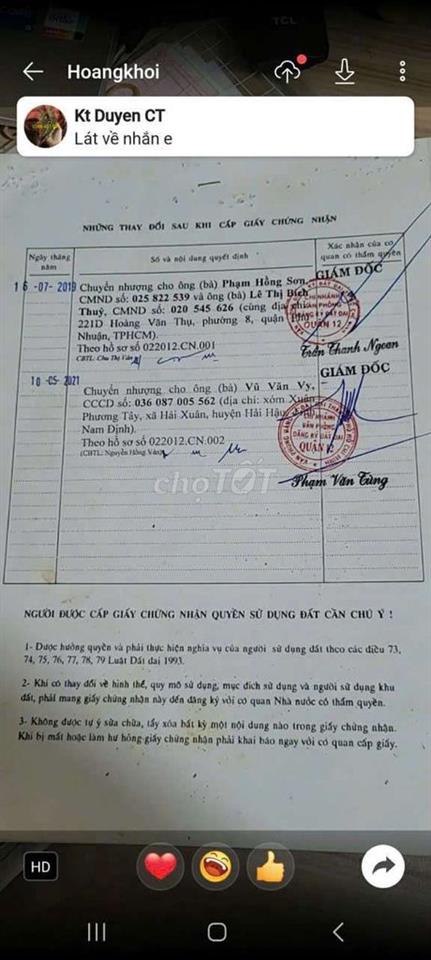 TCL
Hoangkhoi
Kt Duyen CT
Lát về nhắn e
NHỮNG THAY ĐỔI SAU KHI CẤP GIẤY CHỨNG NHẬN
Ngày tháng năm
Số và nội dung quyết định
Xác nhận của cơ quan có thẩm quyền
16-07-2019
Chuyển nhượng cho ông (bà) Phạm Hồng Sơn,
CMND số: 025 822 539 và ông (bà) Lê Thị Bích
Thuỷ, CMND số: 020 545 626 (cùng địa chỉ
221D Hoàng Văn Thụ, phường 8, quận Phú
Nhuận, TPHCM).
Theo hồ sơ 022012.CN.001
(CBTL: Chu Thị Vân)
GIÁM ĐỐC
CHI NHÁNH
VĂN PHÒNG
ĐĂNG KÝ ĐẤT ĐAI
QUẬN 12
Trần Thanh Ngoan
10-05-2021
Chuyển nhượng cho ông (bà) Vũ Văn Vy,
CCCD số: 036 087 005 562 (địa chỉ: xóm Xuân
Phương Tây, xã Hải Xuân, huyện Hải Hậu,
Nam Định).
Theo hồ sơ 022012.CN.002
(CBTL: Nguyễn Hồng Vân)
GIÁM ĐỐC
CHI NHÁNH
VĂN PHÒNG
ĐĂNG KÝ ĐẤT ĐAI
QUẬN 12
Phạm Văn Tùng
chợTỐT
NGƯỜI ĐƯỢC CẤP GIẤY CHỨNG NHẬN QUYỀN SỬ DỤNG ĐẤT CẦN CHÚ Ý !
1- Được hưởng quyền và phải thực hiện nghĩa vụ của người sử dụng đất theo các điều 73,
74, 75, 76, 77, 78, 79 Luật Đất đai 1993.
2- Khi có thay đổi về hình thể, quy mô sử dụng, mục đích sử dụng và người sử dụng khu
đất, phải mang giấy chứng nhận này đến đăng ký với cơ quan Nhà nước có thẩm quyền.
3- Không được tự ý sửa chữa, tẩy xóa bất kỳ một nội dung nào trong giấy chứng nhận.
Khi bị mất hoặc làm hư hỏng giấy chứng nhận phải khai báo ngay với cơ quan cấp giấy.
HD